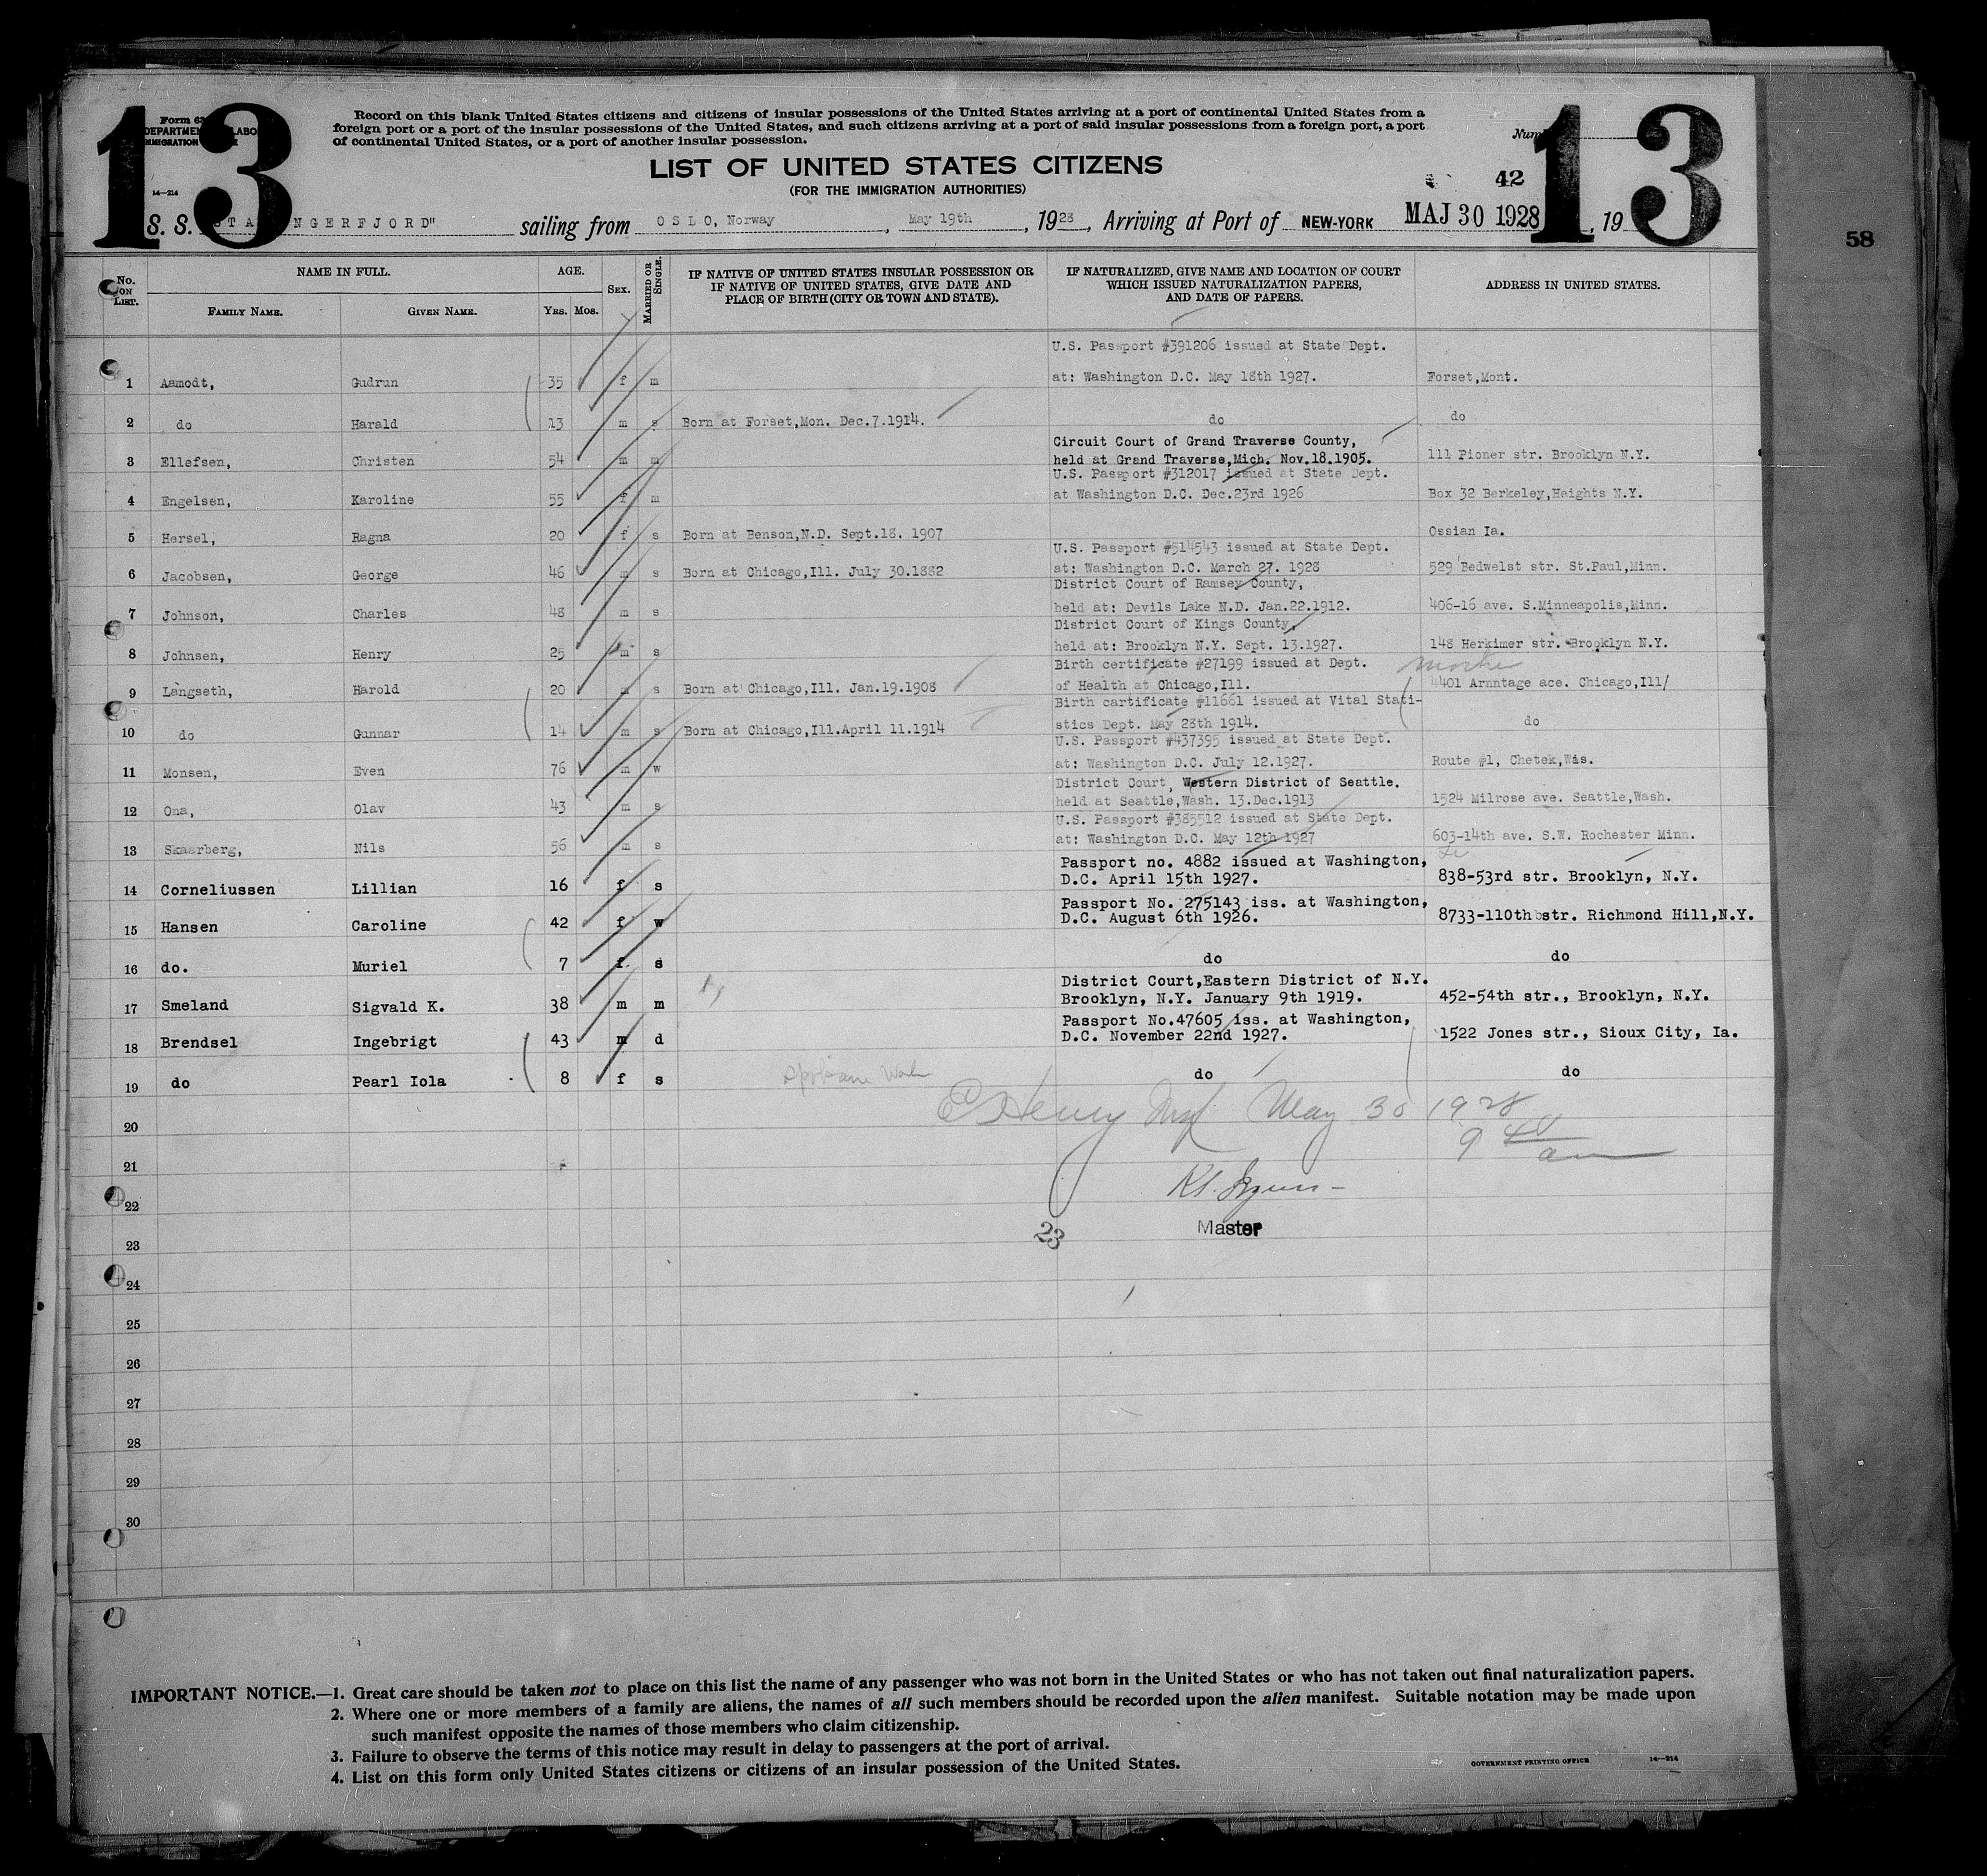 13
13
Form 63
DEPARTMEN LABO
IMMIGRATION
14—214
Record on this blank United States citizens and citizens of insular possessions of the United States arriving at a port of continental United States from a
foreign port or a port of the insular possessions of the United States, and such citizens arriving at a port of said insular possessions from a foreign port, a port
of continental United States, or a port of another insular possession.
LIST OF UNITED STATES CITIZENS
(FOR THE IMMIGRATION AUTHORITIES)
42
58
S. S. STA NGERFJORD" sailing from OSLO, Norway , May 19th , 1928 , Arriving at Port of NEW-YORK MAJ 30 1928 , 19
No. ON LIST. NAME IN FULL. AGE. SEX. MARRIED OR SINGLE. IF NATIVE OF UNITED STATES INSULAR POSSESSION OR IF NATIVE OF UNITED STATES, GIVE DATE AND PLACE OF BIRTH (CITY OR TOWN AND STATE). IF NATURALIZED, GIVE NAME AND LOCATION OF COURT WHICH ISSUED NATURALIZATION PAPERS, AND DATE OF PAPERS. ADDRESS IN UNITED STATES.
FAMILY NAME. GIVEN NAME. YRS. MOS.
U.S. Passport #391206 issued at State Dept.
1 Aamodt, Gudrun 35 f m at: Washington D.C. May 18th 1927. Forset,Mont.
2 do Harald 13 m s Born at Forset,Mon. Dec.7.1914. do do
Circuit Court of Grand Traverse County,
3 Ellefsen, Christen 54 m m held at Grand Traverse,Mich. Nov.18.1905. 111 Pioner str. Brooklyn N.Y.
U.S. Passport #312017 issued at State Dept.
4 Engelsen, Karoline 55 f m at Washington D.C. Dec.23rd 1926 Box 32 Berkeley,Heights N.Y.
5 Hersel, Ragna 20 f s Born at Benson,N.D. Sept.18. 1907 Ossian Ia.
U.S. Passport #514543 issued at State Dept.
6 Jacobsen, George 46 m s Born at Chicago,Ill. July 30.1882 at: Washington D.C. March 27. 1928 529 Bedwelst str. St.Paul,Minn.
District Court of Ramsey County,
7 Johnson, Charles 48 m s held at: Devils Lake N.D. Jan.22.1912. 406-16 ave. S.Minneapolis,Minn.
District Court of Kings County,
8 Johnsen, Henry 25 m s held at: Brooklyn N.Y. Sept. 13.1927. 148 Herkimer str. Brooklyn N.Y.
Birth certificate #27199 issued at Dept.
9 Langseth, Harold 20 m s Born at Chicago,Ill. Jan.19.1908 of Health at Chicago,Ill. 4401 Arnntage ace. Chicago,Ill/
Birth cartificate #11661 issued at Vital Stati-
10 do Gunnar 14 m s Born at Chicago,Ill.April 11.1914 stics Dept. May 28th 1914. do
U.S. Passport #437395 issued at State Dept.
11 Monsen, Even 76 m w at: Washington D.C. July 12.1927. Route #1, Chetek,Wis.
District Court, Western District of Seattle.
12 Ona, Olav 43 m s held at Seattle,Wash. 13.Dec.1913 1524 Milrose ave. Seattle,Wash.
U.S. Passport #385512 issued at State Dept.
13 Skaarberg, Nils 56 m s at: Washington D.C. May 12th 1927 603-14th ave. S.W. Rochester Minn.
Passport no. 4882 issued at Washington,
14 Corneliussen Lillian 16 f s D.C. April 15th 1927. 838-53rd str. Brooklyn, N.Y.
Passport No. 275143 iss. at Washington,
15 Hansen Caroline 42 f w D.C. August 6th 1926. 8733-110th str. Richmond Hill,N.Y.
16 do. Muriel 7 f. s do do
District Court,Eastern District of N.Y.
17 Smeland Sigvald K. 38 m m Brooklyn, N.Y. January 9th 1919. 452-54th str., Brooklyn, N.Y.
Passport No.47605 iss. at Washington,
18 Brendsel Ingebrigt 43 m d D.C. November 22nd 1927. 1522 Jones str., Sioux City, Ia.
19 do Pearl Iola 8 f s Spokane Wash do do
20 Henry May 30 1928
9 40 am
21
22
23
23 Master
24
25
26
27
28
29
30
IMPORTANT NOTICE.—1. Great care should be taken not to place on this list the name of any passenger who was not born in the United States or who has not taken out final naturalization papers.
2. Where one or more members of a family are aliens, the names of all such members should be recorded upon the alien manifest. Suitable notation may be made upon
such manifest opposite the names of those members who claim citizenship.
3. Failure to observe the terms of this notice may result in delay to passengers at the port of arrival.
4. List on this form only United States citizens or citizens of an insular possession of the United States.
GOVERNMENT PRINTING OFFICE 14—214